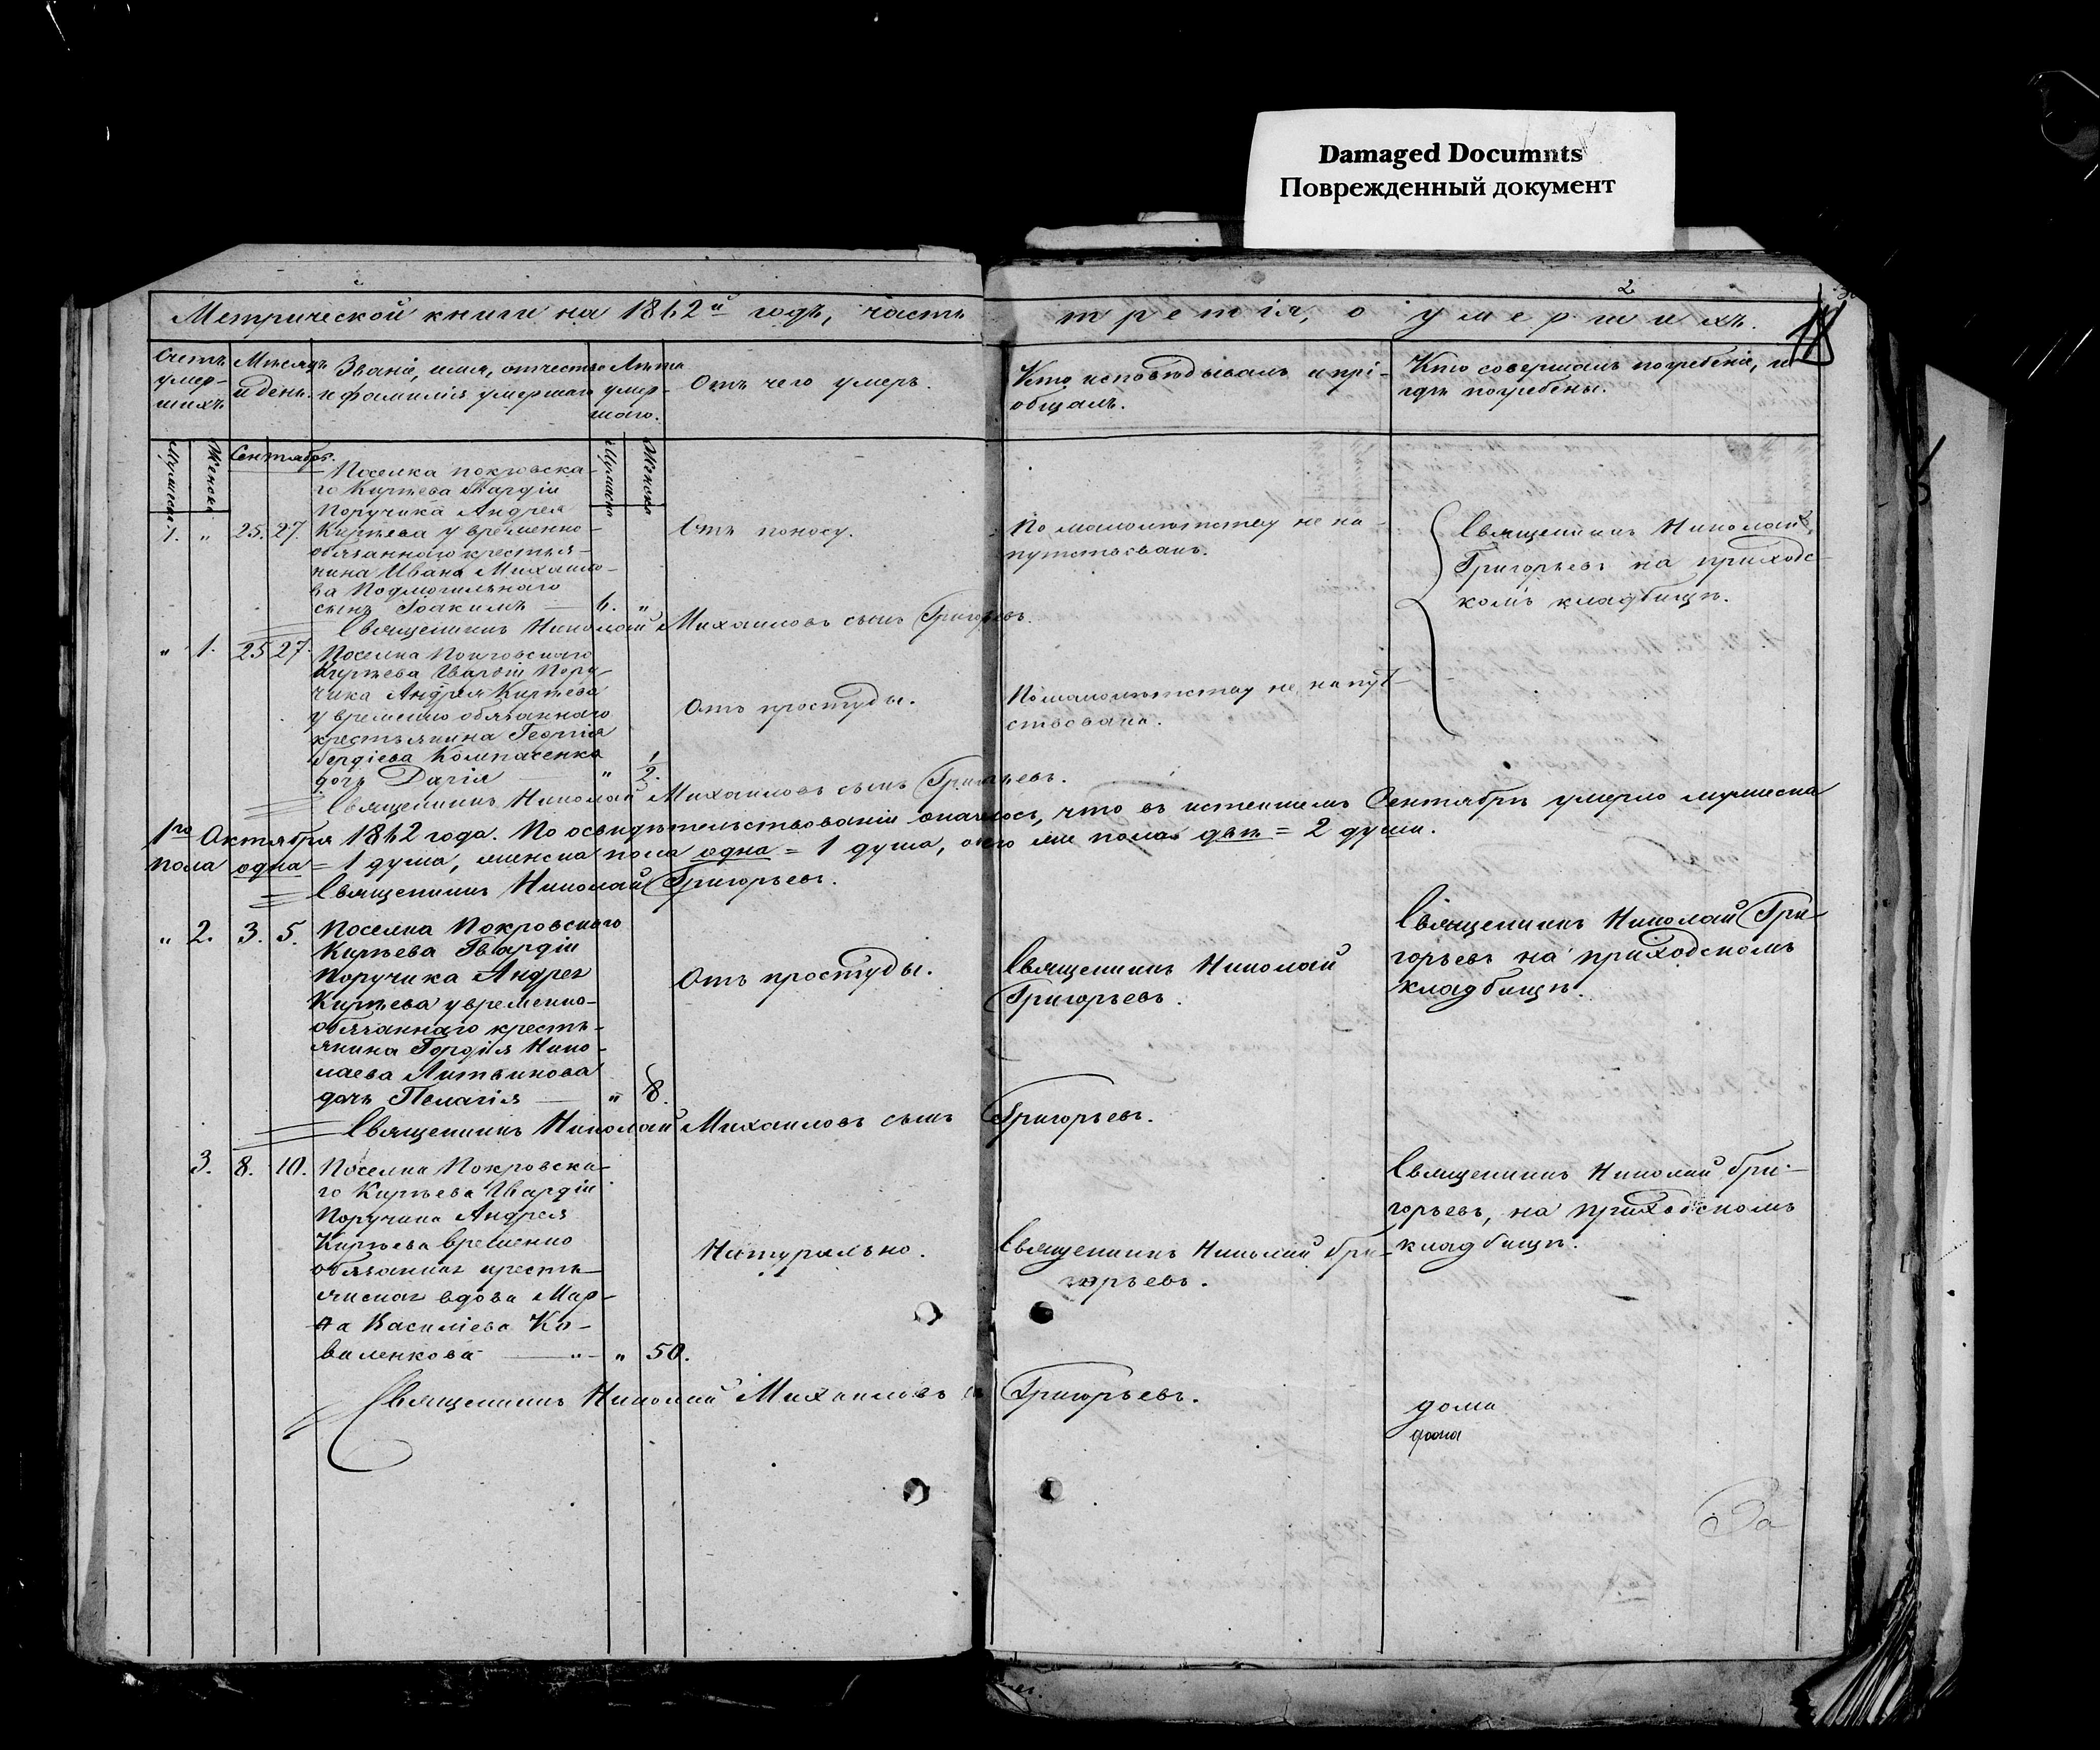 Damaged Documnts
Поврежденный документ
2
Метрической книги на 1862й годъ, часть третія, о умершихъ.
Счетъ умер-
шихъ
Мѣсяцъ
и день.
Званіе, имя, отчество
и фамилія умершаго
Лѣта
умер-
шаго.
Отъ чего умеръ.
Кто исповѣдывалъ и прі-
общалъ.
Кто совершалъ погребеніе, и
гдѣ погребены.
Мужеска
Женска
Сентябрь.
Мужеска
Женска
1. " 25. 27.
Поселка Покровска-
го Кирѣева Гвардіи
Поручика Андрея
Кирѣева у временно-
обязаннаго крестья-
нина Ивана Михаило-
ва Подмогильнаго
сынъ Іоакимъ — 6. "
Отъ поносу.
По малолѣтству не на-
путствованъ.
Священникъ Николай
Григорьевъ на приходс-
комъ кладбищѣ.
Священникъ Николай Михаиловъ сынъ Григорьевъ.
" 1. 25 27.
Поселка Покровскаго
Кирѣева Гвардіи Пору-
чика Андрея Кирѣева
у временно обязаннаго
крестьянина Георгія
дочь Дарія — " 1/2.
Отъ простуды.
По малолѣтству не напут-
ствована.
Священникъ Николай Михаиловъ сынъ Григорьевъ.
1го Октября 1862 года. По освидѣтельствованіи оказалось, что въ истекшемъ Сентябрѣ умерло мужеска
пола одна = 1 душа, женска пола одна = 1 душа, обоего пола двѣ = 2 души.
Священникъ Николай Григорьевъ.
" 2. 3. 5.
Поселка Покровскаго
Кирѣева Гвардіи
Поручика Андрея
Кирѣева у временно-
обязаннаго кресть-
янина Гордія Нико-
лаева Литвинова
дочь Пелагія — " 8.
Отъ простуды.
Священникъ Николай
Григорьевъ.
Священникъ Николай Гри-
горьевъ на приходскомъ
кладбищѣ.
Священникъ Николай Михаиловъ сынъ Григорьевъ.
3. 8. 10.
Поселка Покровска-
го Кирѣева Гвардіи
Поручика Андрея
Кирѣева временно
обязанная кресть-
янская вдова Мар-
ѳа Василіева Ко-
валенкова — " 50.
Натурально.
Священникъ Николай Гри-
горьевъ.
Священникъ Николай Гри-
горьевъ, на приходскомъ
кладбищѣ.
Священникъ Николай Михаиловъ Григорьевъ.
дома
дома